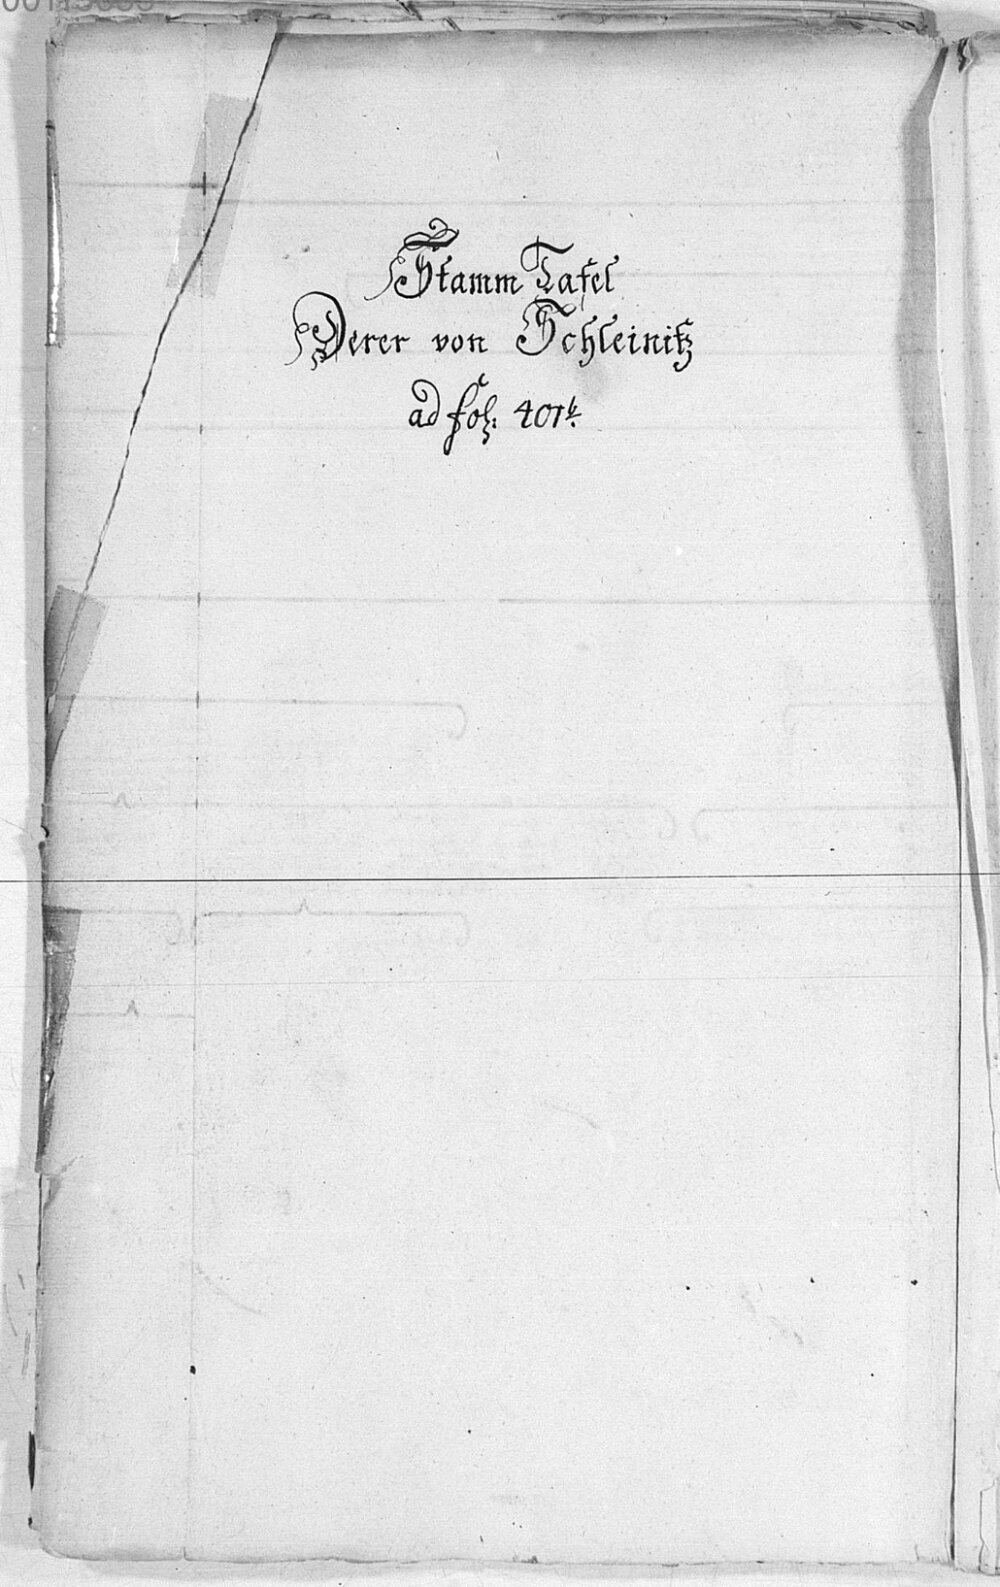 Stamm Tafel
Derer von Schleinitz
ad fol: 401b.